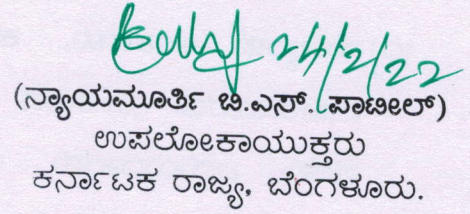 24/2/22
(ನ್ಯಾಯಮೂರ್ತಿ ಬಿ.ಎಸ್. ಪಾಟೀಲ್)
ಉಪಲೋಕಾಯುಕ್ತರು
ಕರ್ನಾಟಕ ರಾಜ್ಯ, ಬೆಂಗಳೂರು.